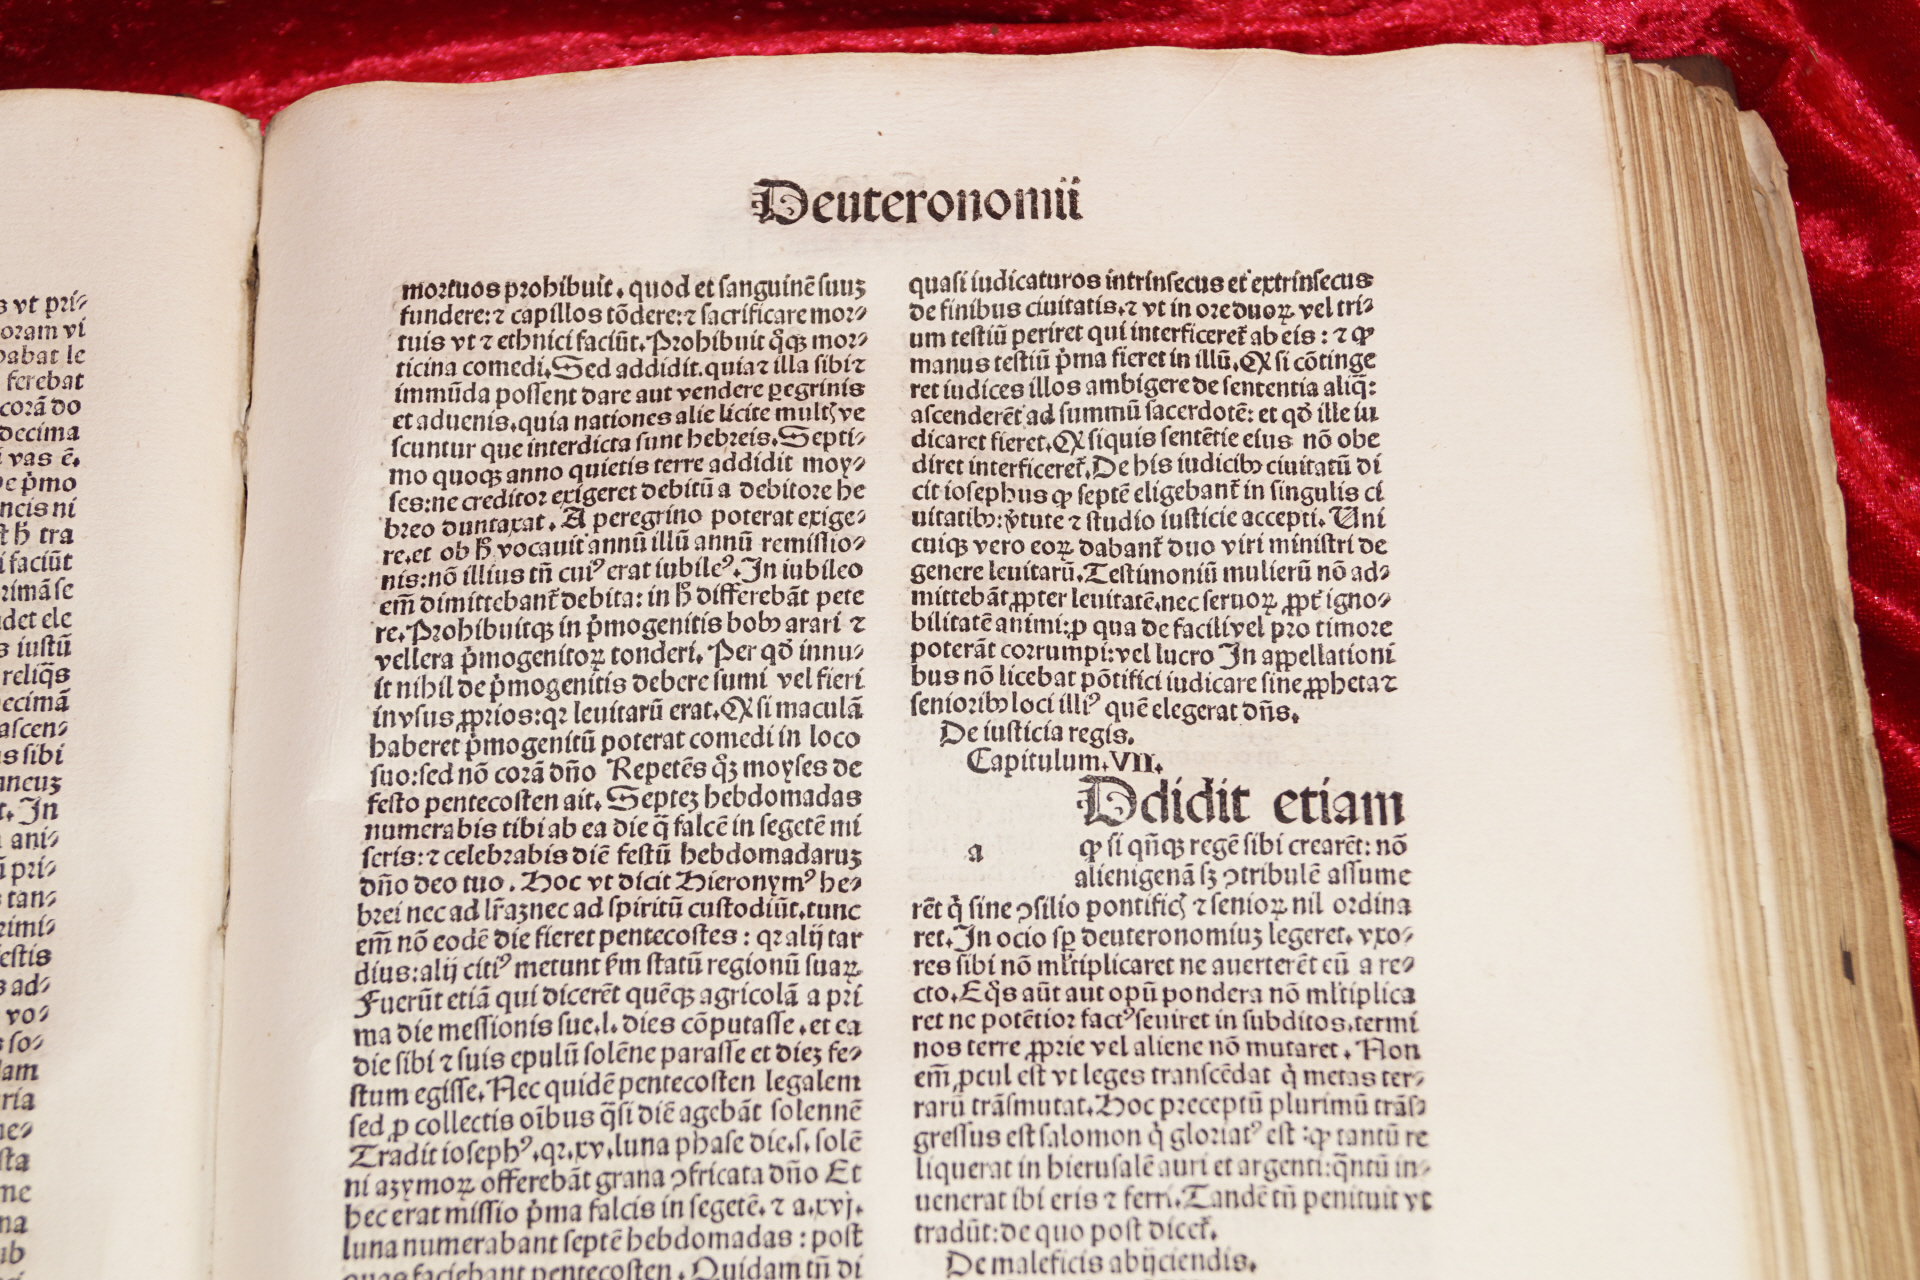 s vt pri⸗
oram vi
babat le
ferebat
corā do
decima
vas ē.
De p̄mo
ncis ni
st ħ tra
i faciūt
rimā se
idet ele
s iustū
reliq̄s
ecimā
ascen⸗
us sibi
ancuꝫ
t. In
ani⸗
ū pri⸗
s tan⸗
rimi⸗
festis
s ad⸗
vo⸗
s so⸗
dam
ria
ne⸗
sta
me
na
ub
Deuteronomii
mortuos prohibuit. quod et sanguinē suuꝫ
fundere: ⁊ capillos tōdere: ⁊ sacrificare mor⸗
tuis vt ⁊ ethnici faciūt. Prohibuit q̊qꝫ mor⸗
ticina comedi. Sed addidit. quia ⁊ illa sibi ⁊
immūda possent dare aut vendere ꝑegrinis
et aduenis. quia nationes alie licite mult̄ ve
scuntur que interdicta sunt hebreis. Septi⸗
mo quoqꝫ anno quietis terre addidit moy⸗
ses: ne creditor exigeret debitū a debitore he
breo duntaxat. A peregrino poterat exige⸗
re. et ob ħ vocauit annū illū annū remissio⸗
nis: nō illius tn̄ cuiꝰ erat iubileꝰ. In iubileo
em̄ dimittebant̄ debita: in ħ differebāt pete
re. Prohibuitqꝫ in p̄mogenitis bobꝫ arari ⁊
vellera p̄mogenitoꝝ tonderi. Per qđ innu⸗
it nihil de p̄mogenitis debere sumi vel fieri
in vsus ꝓprios: qꝛ leuitarū erat. Q si maculā
haberet p̄mogenitū poterat comedi in loco
suo: sed nō corā dn̄o Repetēs qꝫ moyses de
festo pentecosten ait. Septeꝫ hebdomadas
numerabis tibi ab ea die q̄ falcē in segetē mi
seris: ⁊ celebrabis diē festū hebdomadaruꝫ
dn̄o deo tuo. Hoc vt dicit Hieronymꝰ he⸗
brei nec ad lr̄aꝫ nec ad spiritū custodiūt. tunc
em̄ nō eodē die fieret pentecostes: qꝛ alij tar
dius: alij citiꝰ metunt ẜm statū regionū suaꝝ
Fuerūt etiā qui dicerēt quēqꝫ agricolā a pri
ma die messionis sue. l. dies cōputasse. et ea
die sibi ⁊ suis epulū solēne parasse et dieꝫ fe⸗
stum egisse. Nec quidē pentecosten legalem
sed ꝓ collectis oībus q̄si diē agebāt solennē
Tradit iosephꝰ. qꝛ. xv. luna phase die. s. solē
ni azymoꝝ offerebāt grana ꝯfricata dn̄o Et
hec erat missio p̄ma falcis in segetē. ⁊ a. xvj.
luna numerabant septē hebdomadas: post
quas faciebant pentecosten. Quidam tn̄ di
quasi iudicaturos intrinsecus et extrinsecus
de finibus ciuitatis. ⁊ vt in ore duoꝝ vel tri⸗
um testiū periret qui interficeret̄ ab eis: ⁊ ꝙ
manus testiū p̄ma fieret in illū. Q si cōtinge
ret iudices illos ambigere de sententia aliq̄:
ascenderēt ad summū sacerdotē: et qđ ille iu
dicaret fieret. Q siquis sentētie eius nō obe
diret interficeret̄. De his iudicibꝫ ciuitatū di
cit iosephus ꝙ septē eligebant̄ in singulis ci
uitatibꝫ: v̄tute ⁊ studio iusticie accepti. Uni
cuiqꝫ vero eoꝝ dabant̄ duo viri ministri de
genere leuitarū. Testimoniū mulierū nō ad⸗
mittebāt ꝓpter leuitatē. nec seruoꝝ ꝓpt̄ igno⸗
bilitatē animi: ꝓ qua de facili vel pro timore
poterāt corrumpi: vel lucro In appellationi
bus nō licebat pōtifici iudicare sine ꝓpheta ⁊
senioribꝫ loci illiꝰ quē elegerat dn̄s.
De iusticia regis.
Capitulum. VII.
Ddidit etiam
a ꝙ si qn̄qꝫ regē sibi crearēt: nō
alienigenā sꝫ ꝯtribulē assume
rēt q̇ sine ꝯsilio pontific̄ ⁊ senioꝝ nil ordina
ret. In ocio sꝑ deuteronomiuꝫ legeret. vxo⸗
res sibi nō ml̄tiplicaret ne auerterēt eū a re⸗
cto. Eq̊s aūt aut opū pondera nō ml̄tiplica
ret ne potētior factꝰ seuiret in subditos. termi
nos terre ꝓprie vel aliene nō mutaret. Non
em̄ ꝓcul est vt leges transcēdat q̇ metas ter⸗
rarū trāsmutat. Hoc preceptū plurimū trās⸗
gressus est salomon q̇ gloriatꝰ est: ꝙ tantū re
liquerat in hierusalē auri et argenti: q̄ntū in⸗
uenerat ibi eris ⁊ ferri. Tandē tn̄ penituit vt
tradūt: de quo post dicet̄.
De maleficis abijciendis.